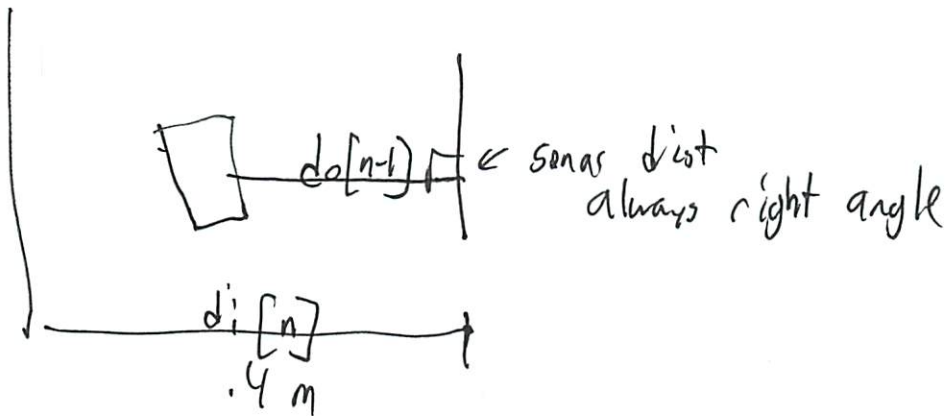 do[n-1]
← sonar dist
always right angle
di[n]
.4 m